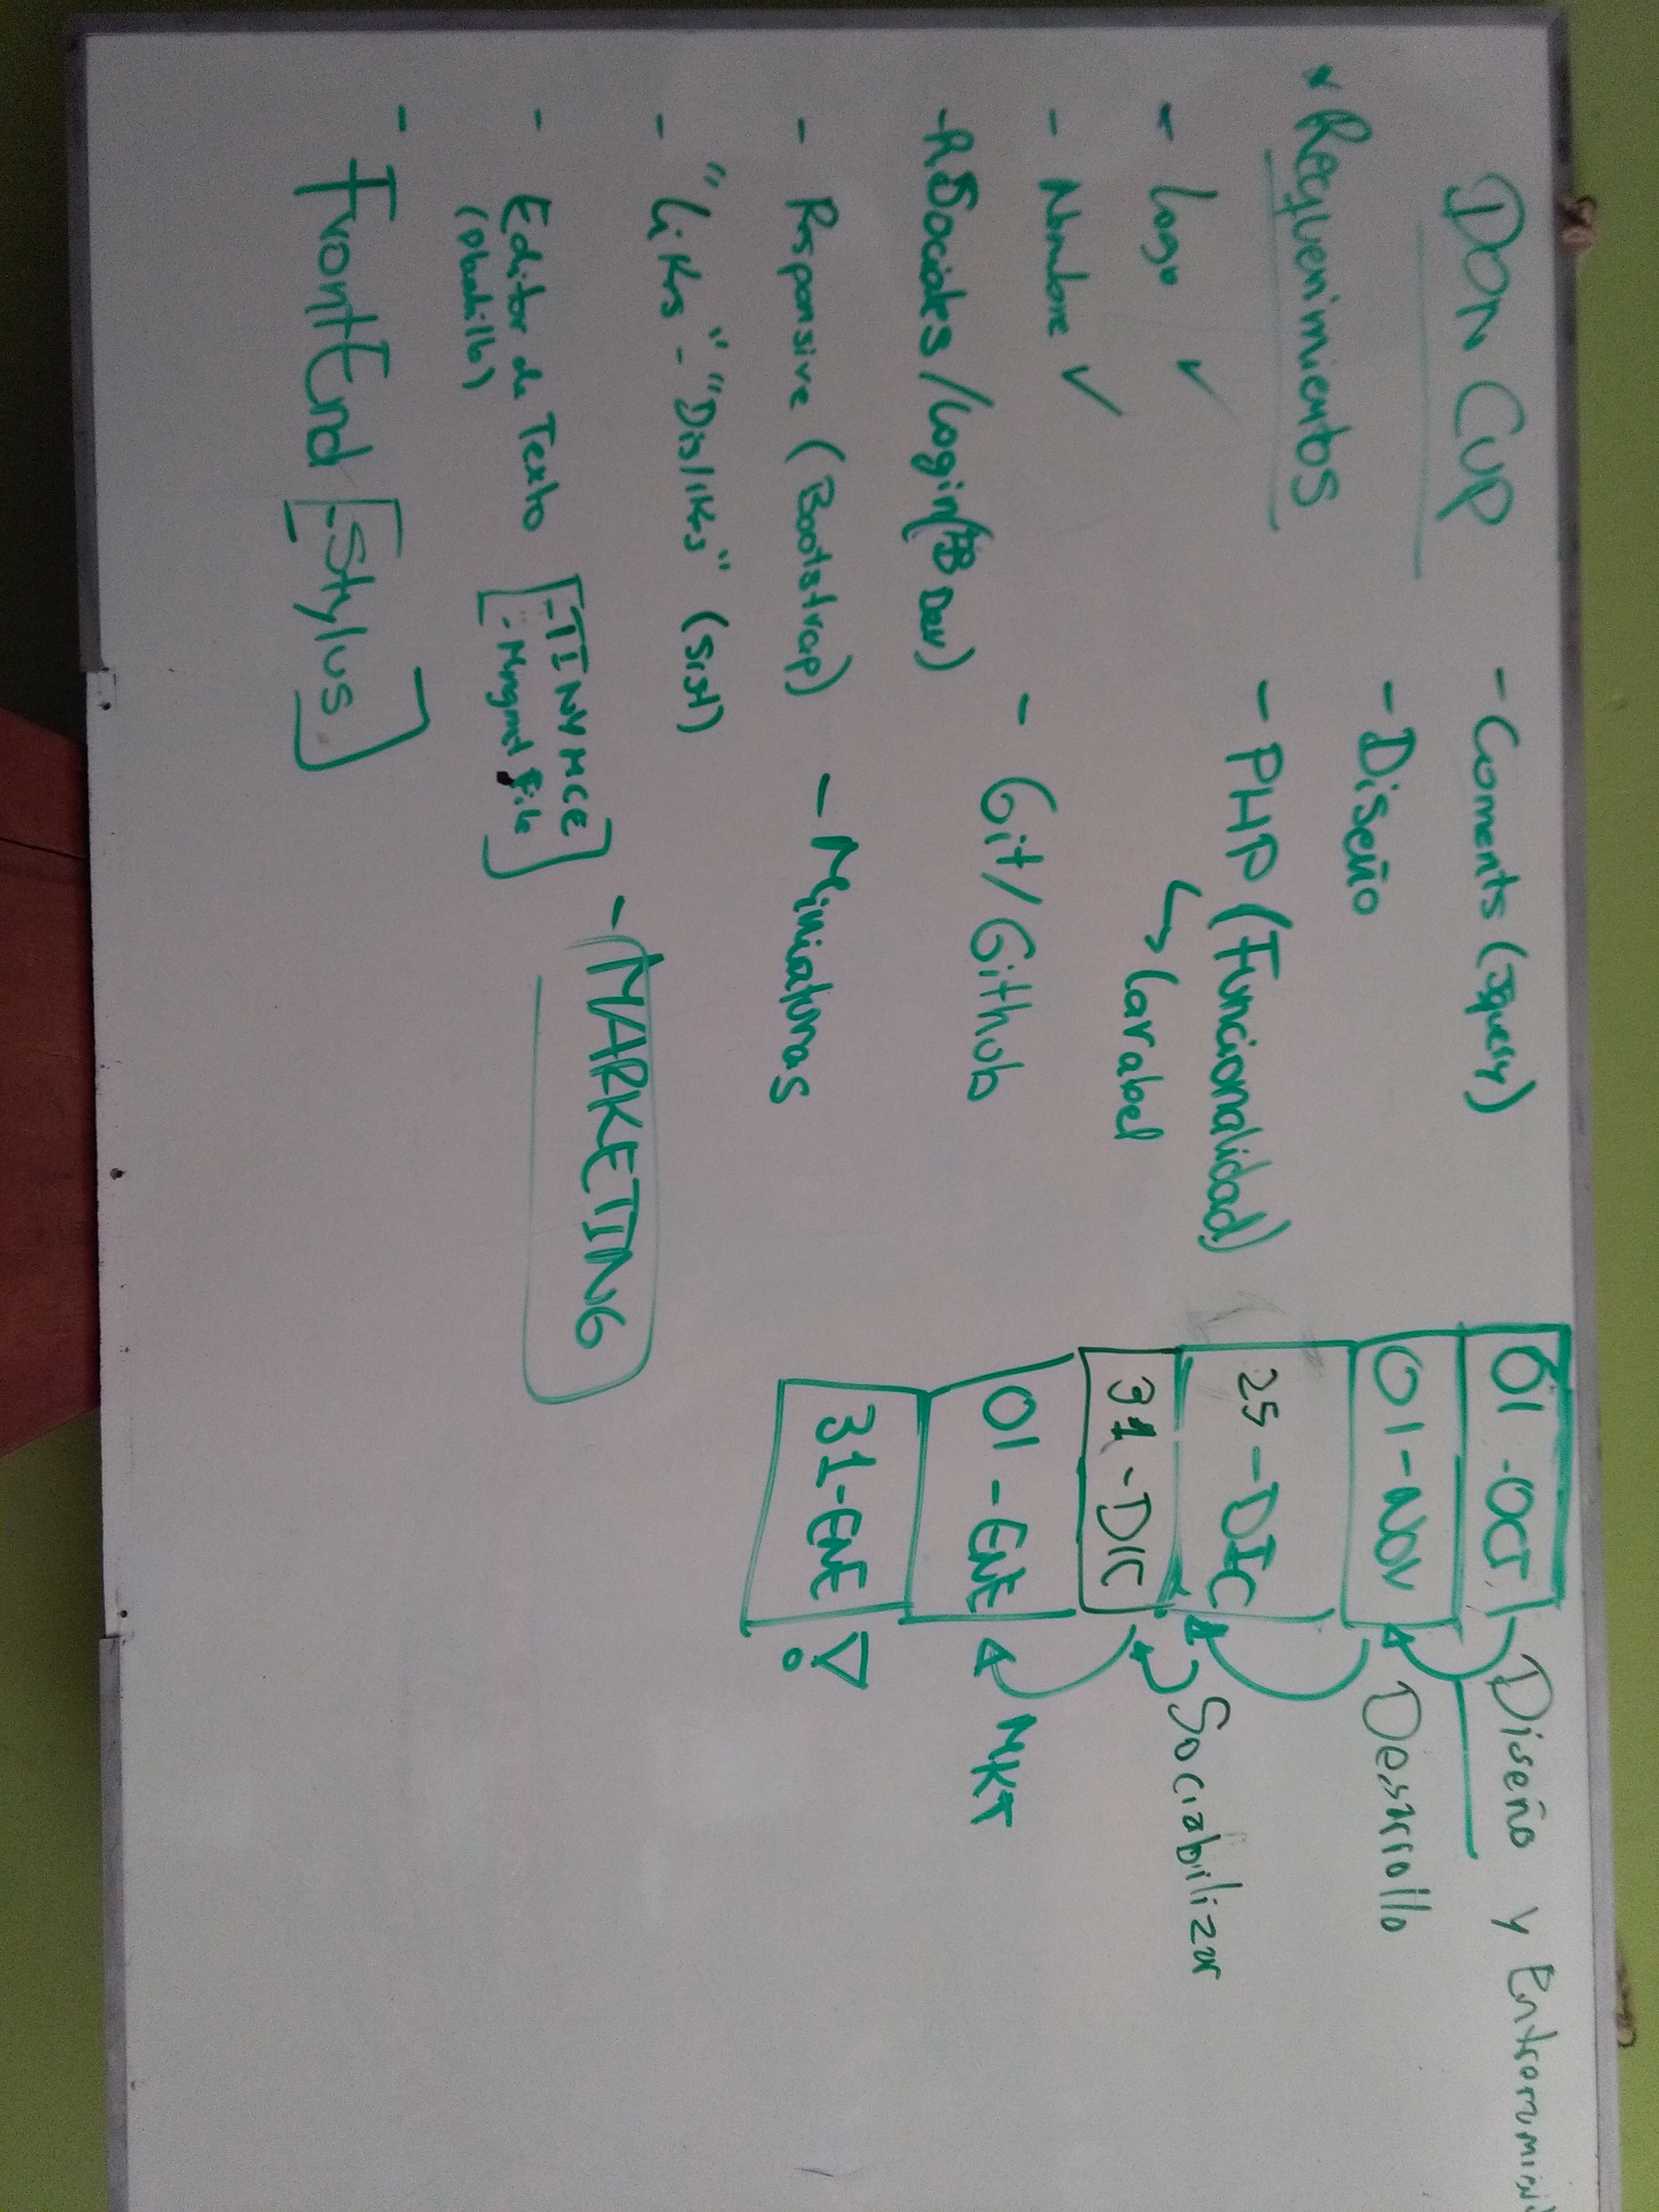 DON CUP
* Requerimientos
- Logo ✓
- Nombre ✓
- R Sociales / Login (FB Dev)
- Responsive (Bootstrap)
- "Likes" - "Dislikes" (Sist)
- Editor de Texto
[- TINYMCE
- Mngmt File]
- FrontEnd [- Stylus]
- Coments (Jquery)
- Diseño
- PHP (Funcionalidad)
↳ Larabel
- Git / Github
- Miniaturas
- MARKETING
01 - OCT Diseño y
01 - NOV Desarrollo
25 - DIC
31 - DIC Sociabilizar
01 - ENE MKT
31 - ENE